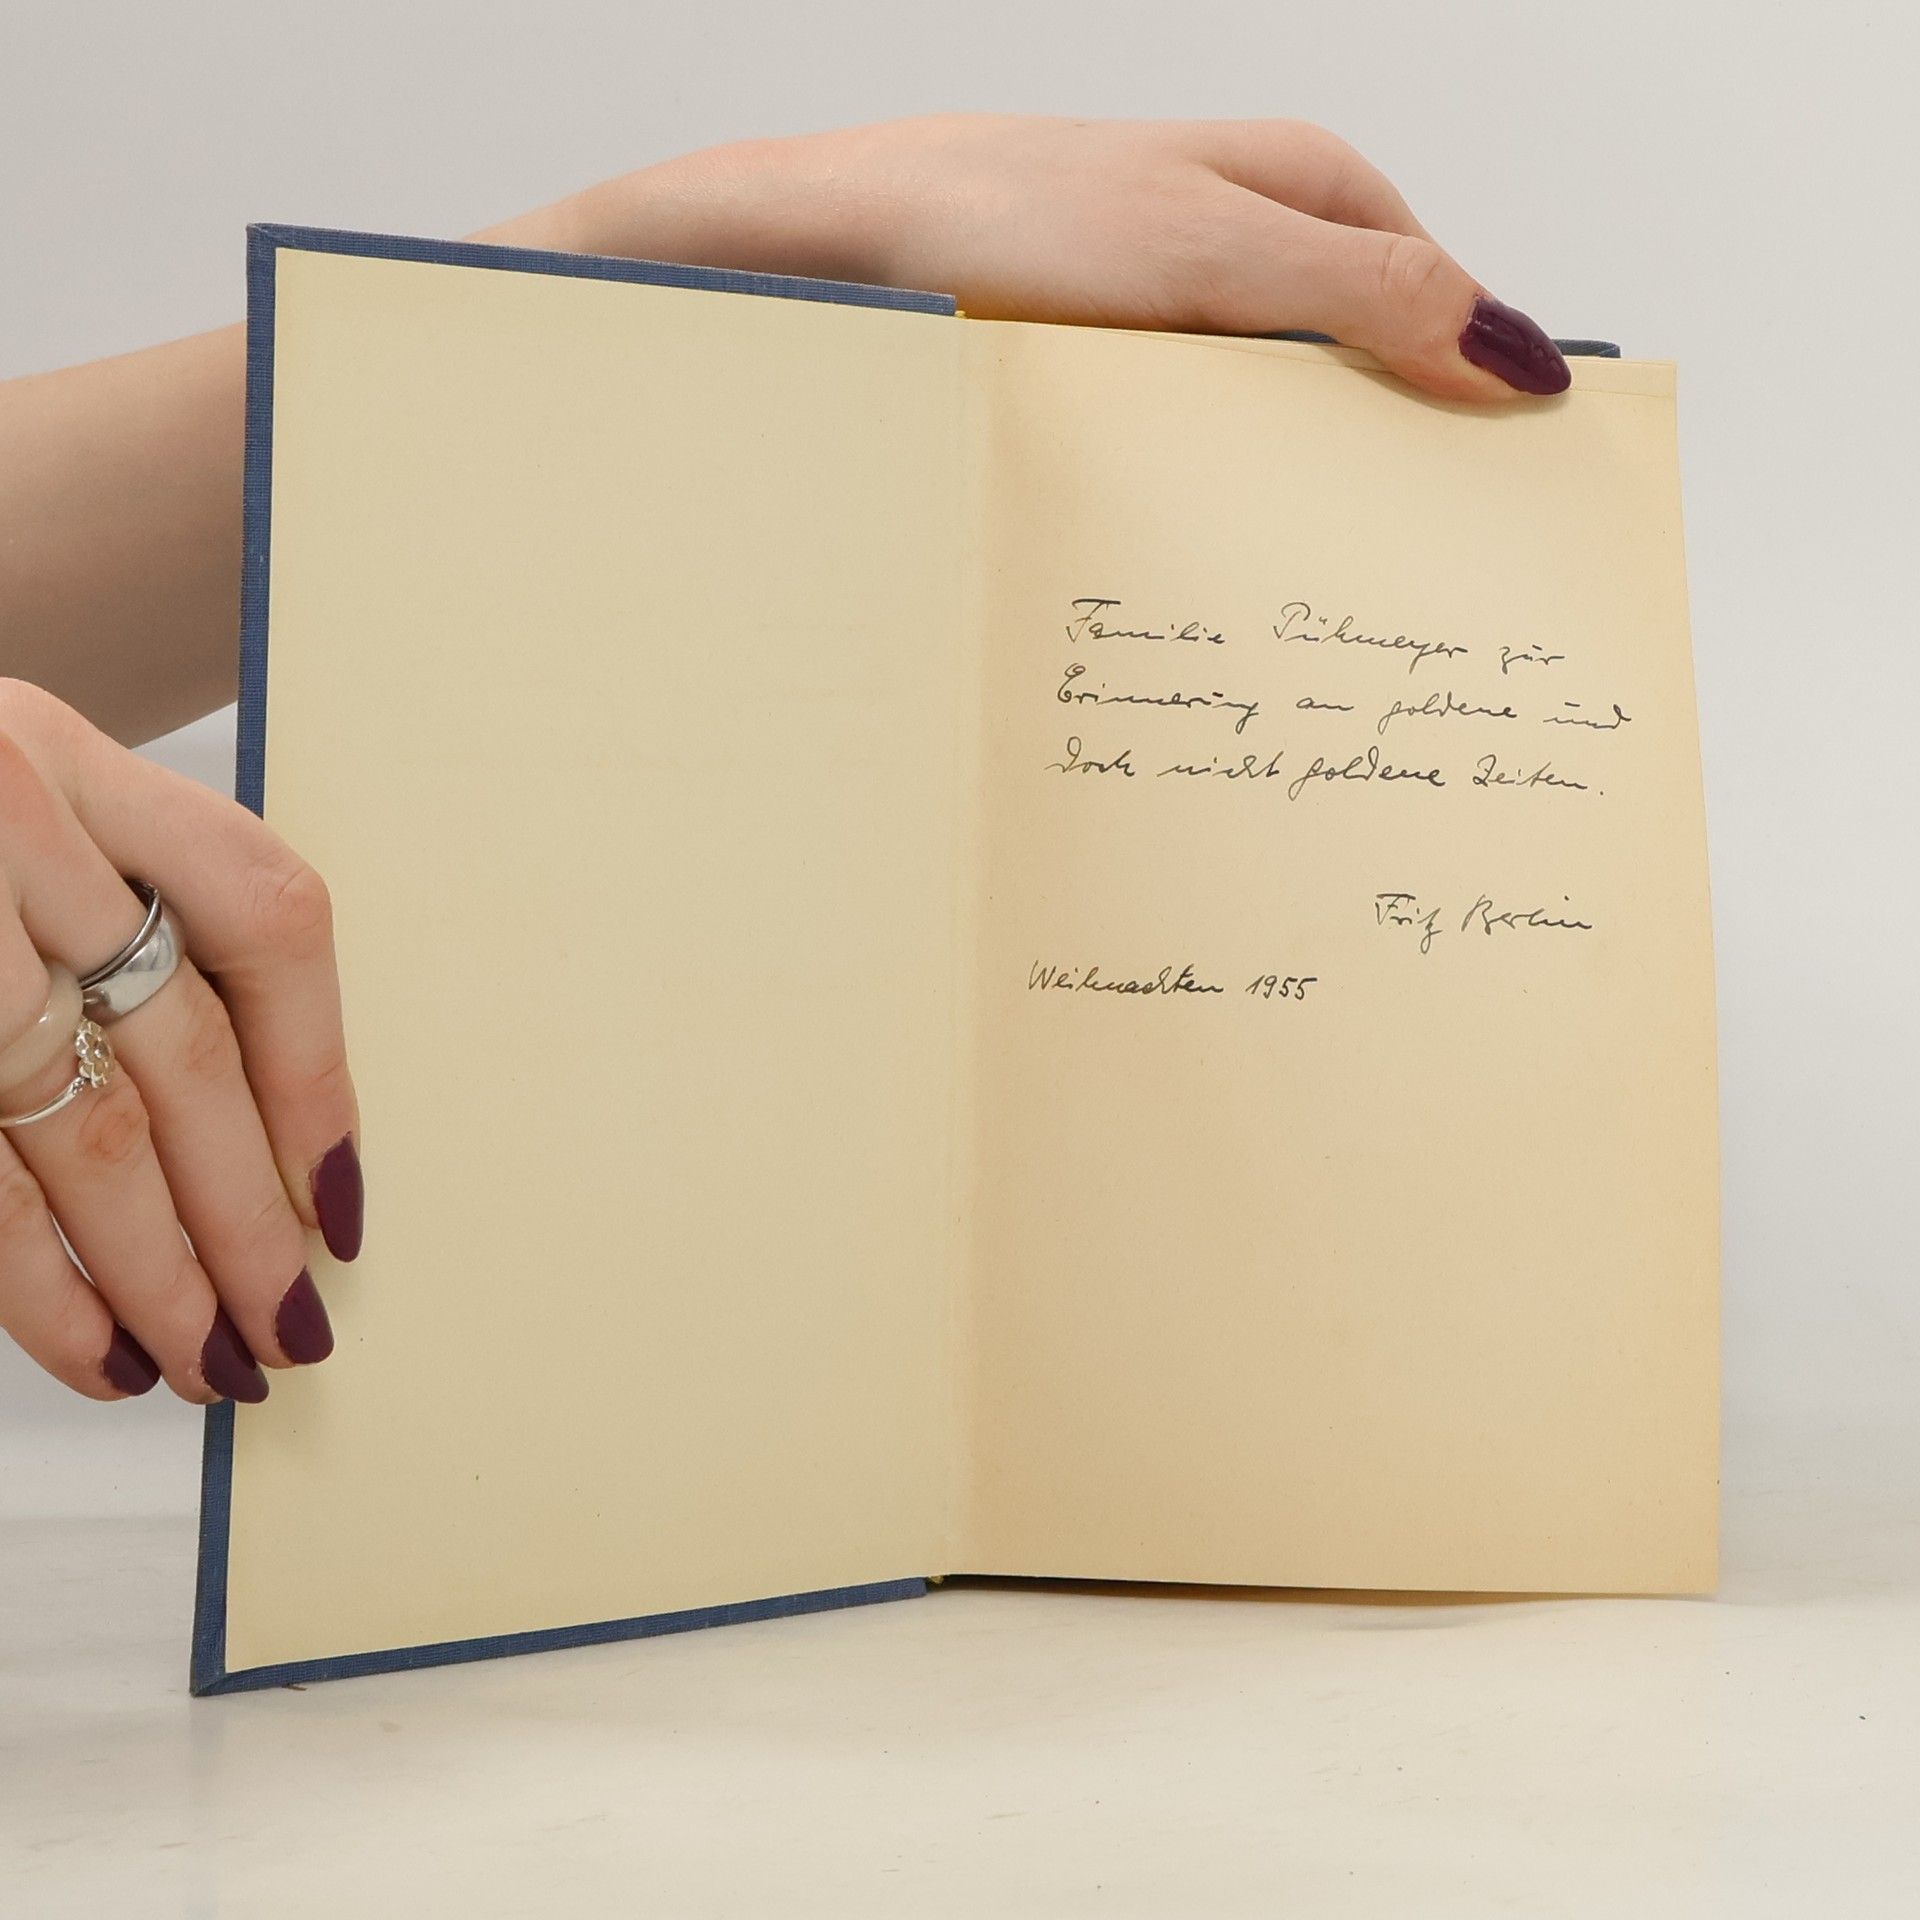 Familie Pühmeyer zur
Erinnerung an goldene und
doch nicht goldene Zeiten.
Fritz Berlin
Weihnachten 1955